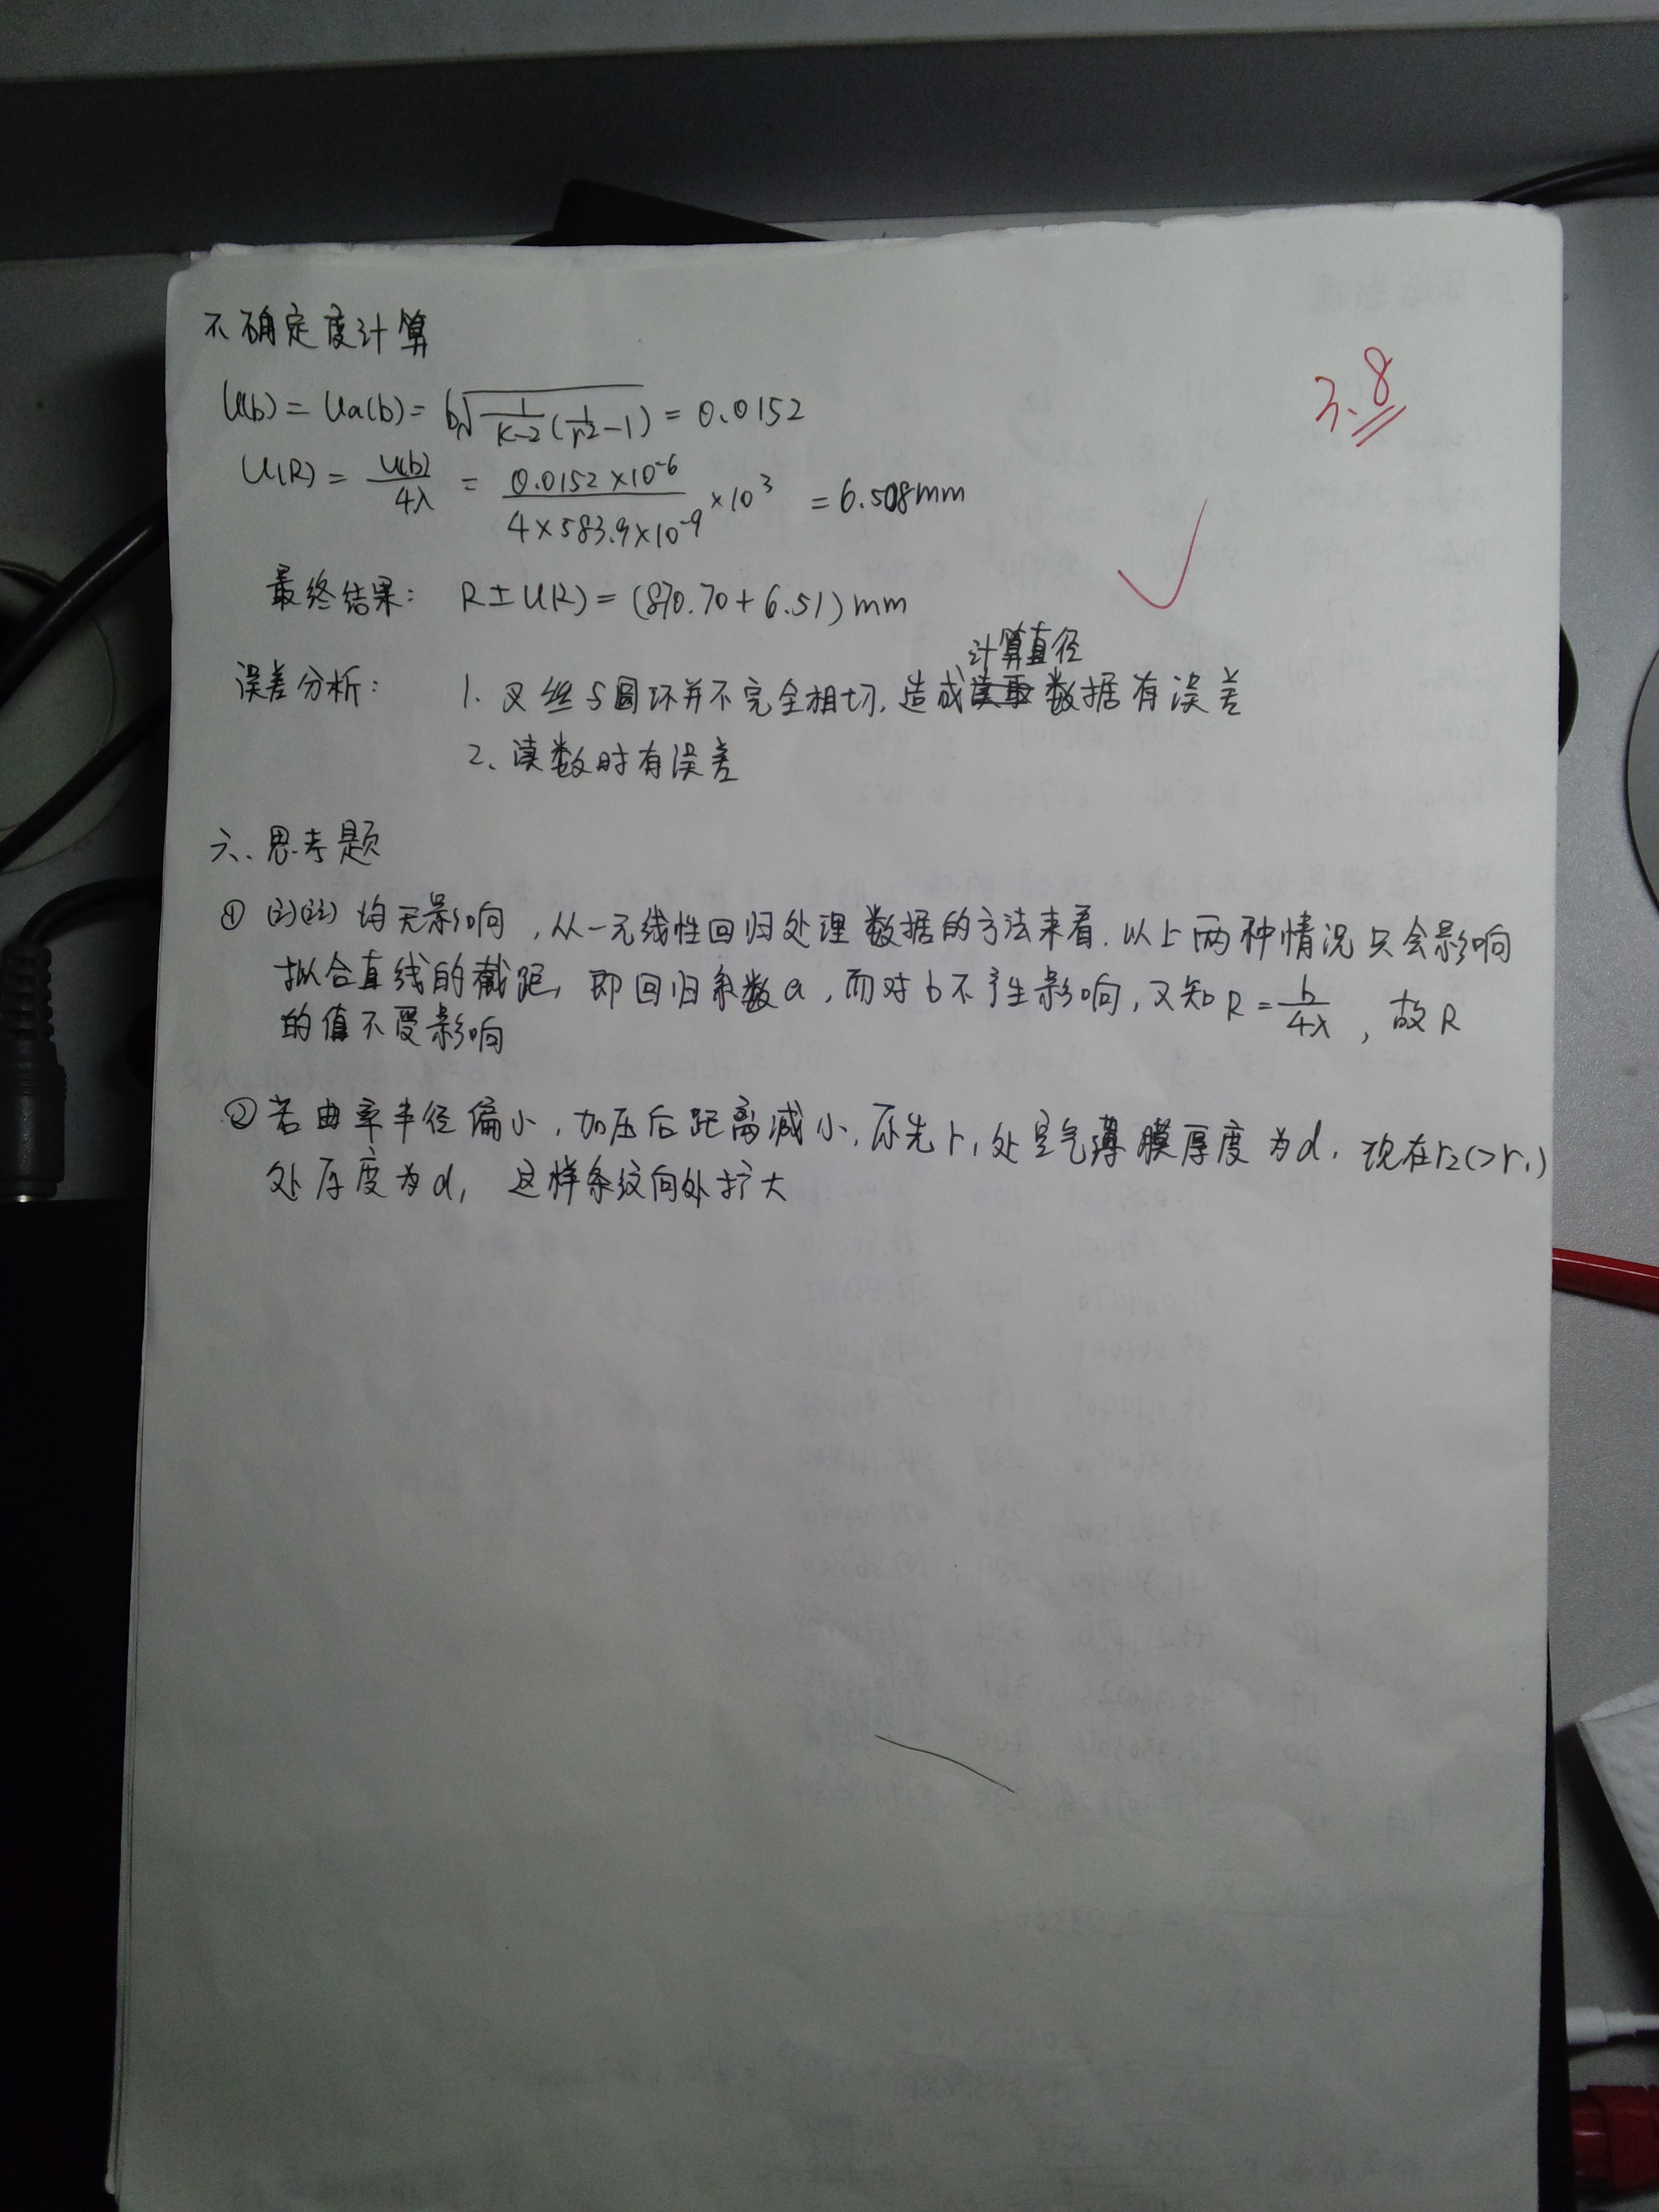 不确定度计算
3.8
U(b) = Ua(b) = b√(1/(K-2) (1/r²-1)) = 0.0152
U(R) = U(b)/4λ = (0.0152×10⁻⁶)/(4×583.9×10⁻⁹) ×10³ = 6.508mm
最终结果: R±U(R) = (870.70+6.51)mm
计算直径
误差分析: 1. 叉丝与圆环并不完全相切, 造成读取数据有误差
2、读数时有误差
六、思考题
① (i)(ii) 均无影响, 从一元线性回归处理数据的方法来看. 以上两种情况只会影响
拟合直线的截距, 即回归系数a, 而对b不产生影响, 又知R=b/4λ, 故R
的值不受影响
② 若曲率半径偏小, 加压后距离减小, 原先r₁处空气薄膜厚度为d, 现在r₂(>r₁)
处厚度为d, 这样条纹向外扩大